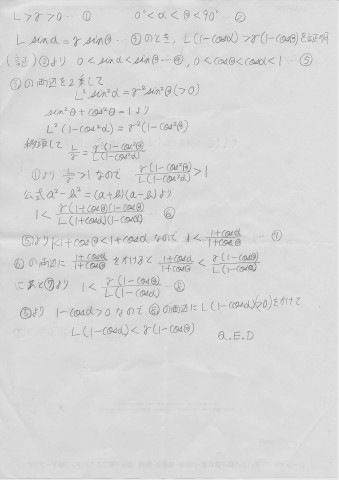 L>γ>0 … ① 0°<α<θ<90° … ②
L sinα=γ sinθ … ③のとき、L(1-cosα)>γ(1-cosθ)を証明
(証) ②より 0<sinα<sinθ … ④, 0<cosθ<cosα<1 … ⑤
③の両辺を2乗して
L² sin²α=γ² sin²θ(>0)
sin²θ+cos²θ=1より
L²(1-cos²α)=γ²(1-cos²θ)
して L/γ=γ(1-cos²θ)/L(1-cos²α)
①より L/γ>1なので γ(1-cos²θ)/L(1-cos²α)>1
公式a²-b²=(a+b)(a-b)より
1<γ(1+cosθ)(1-cosθ)/L(1+cosα)(1-cosα) ⑥
⑤より1<1+cosθ<1+cosα なので 1<1+cosα/1+cosθ … ⑦
⑥の両辺に 1+cosα/1+cosθ をかけると 1+cosα/1+cosθ<γ(1-cosθ)/L(1-cosα)
⑦より 1<γ(1-cosθ)/L(1-cosα) … ⑧
⑤より 1-cosα>0なので ⑧の両辺にL(1-cosα)(>0)をかけて
L(1-cosα)<γ(1-cosθ) Q.E.D